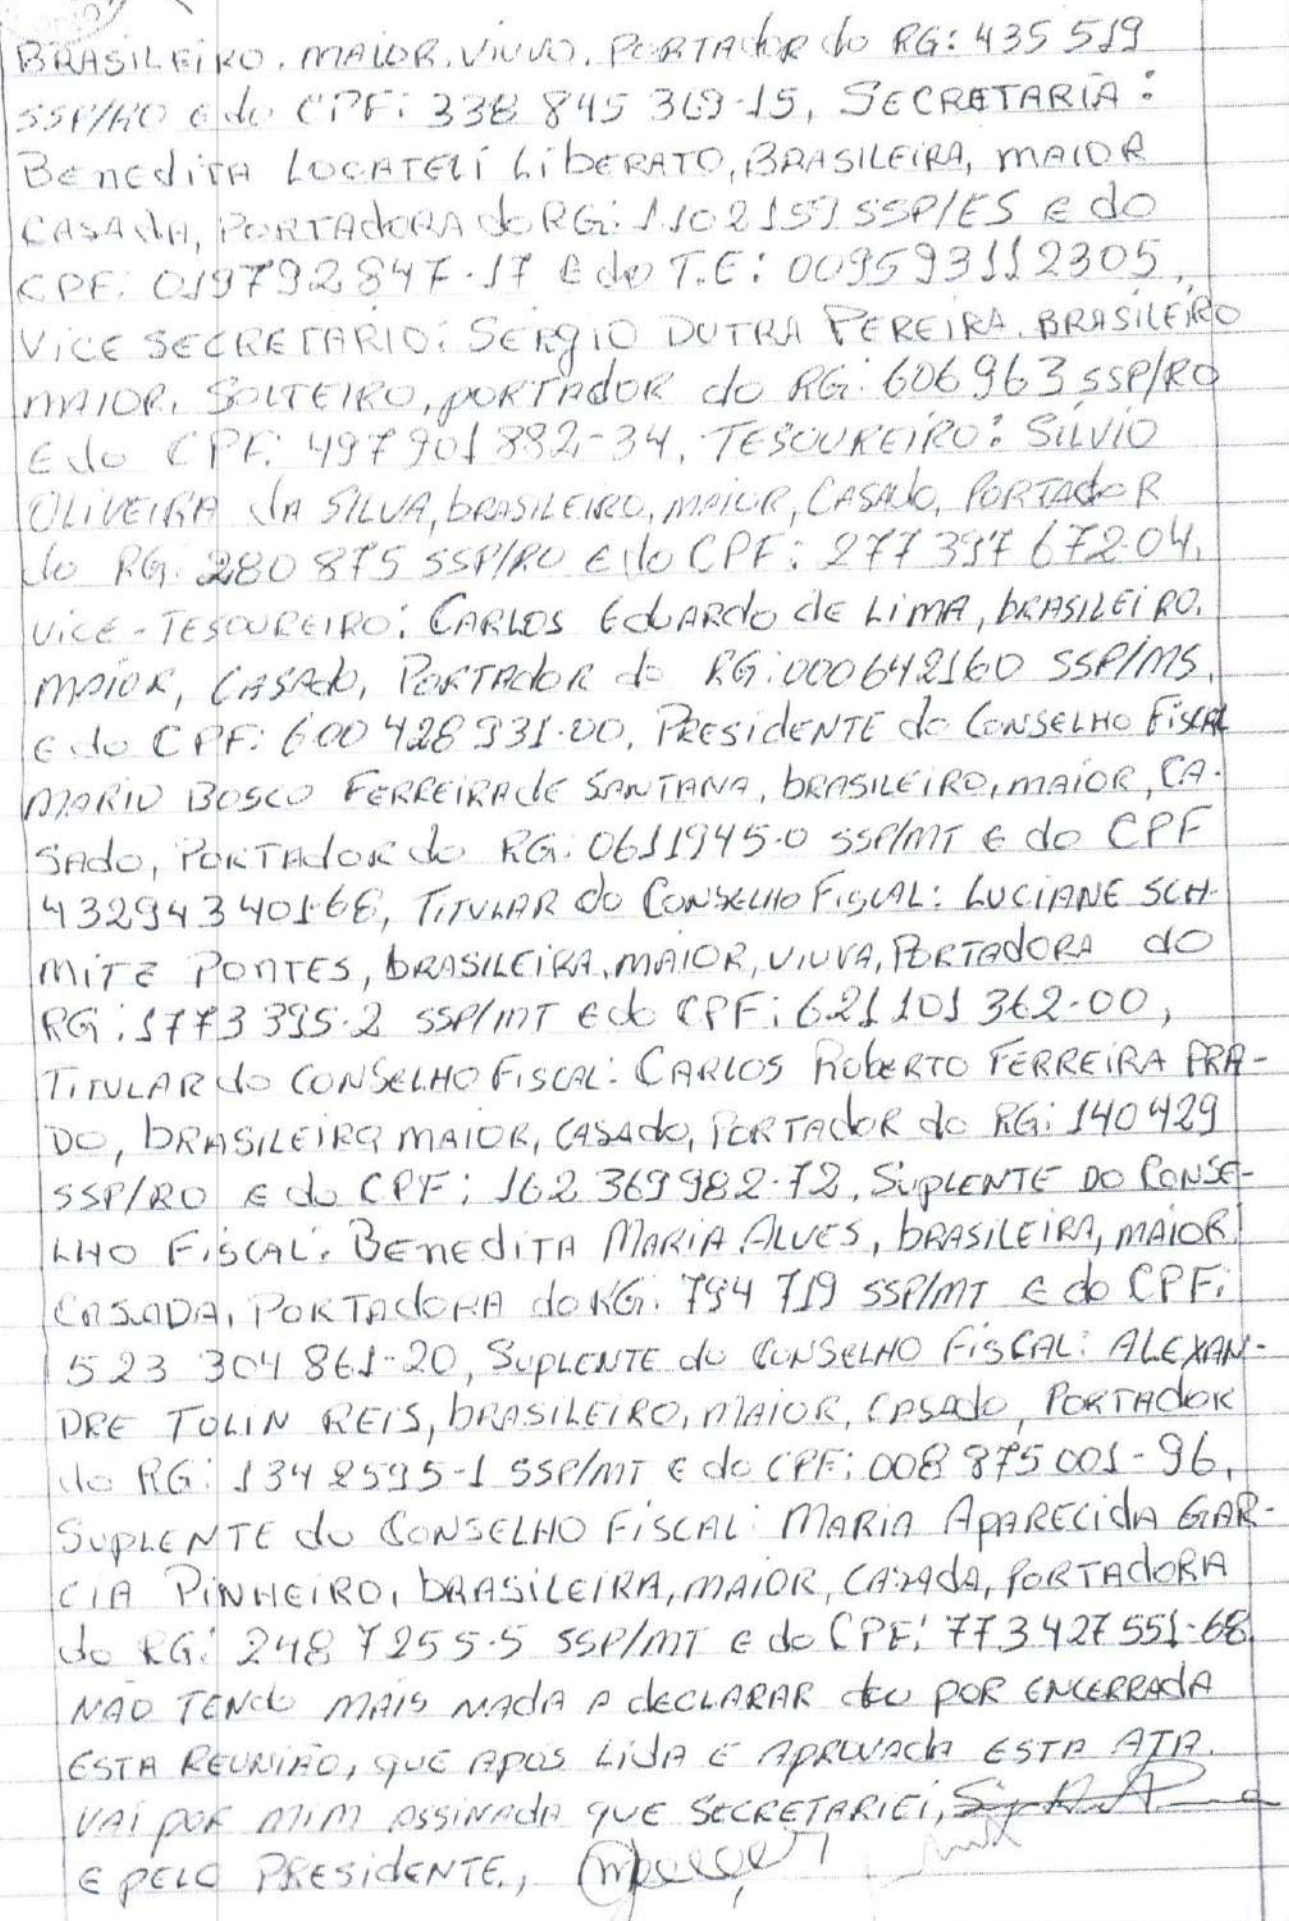 BRASILEIRO. MAIOR. VIUVO. PORTADOR do RG: 435 519
SSP/RO E do CPF: 338 845 369-15, SECRETARIA:
BENEDITA LOCATELI LIBERATO, BRASILEIRA, MAIOR
CASADA, PORTADORA do RG: 1.102159 SSP/ES E do
CPF: 019792847-17 E do T.E: 009593112305,
VICE SECRETARIO: SERGIO DUTRA PEREIRA. BRASILEIRO
MAIOR, SOLTEIRO, PORTADOR do RG: 606963 SSP/RO
E do CPF: 497901882-34. TESOUREIRO: SILVIO
OLIVEIRA DA SILVA, BRASILEIRO, MAIOR, CASADO, PORTADOR
do RG: 280 875 SSP/RO E do CPF: 277 397 672-04,
VICE-TESOUREIRO: CARLOS EDUARDO DE LIMA, BRASILEIRO,
MAIOR, CASADO, PORTADOR do RG: 000642160 SSP/MS,
E do CPF: 600 428 931-00, PRESIDENTE do CONSELHO FISCAL
MARIO BOSCO FERREIRA de SANTANA, BRASILEIRO, MAIOR, CA-
SADO, PORTADOR do RG: 0611945-0 SSP/MT E do CPF
432943401-68, TITULAR do CONSELHO FISCAL: LUCIANE SCH-
MITZ PONTES, BRASILEIRA, MAIOR, VIUVA, PORTADORA do
RG: 1773 395-2 SSP/MT E do CPF: 621 101 362-00,
TITULAR do CONSELHO FISCAL: CARLOS ROBERTO FERREIRA PRA-
DO, BRASILEIRO MAIOR, CASADO, PORTADOR do RG: 140 429
SSP/RO E do CPF: 162 369 982-72, SUPLENTE DO CONSE-
LHO FISCAL: BENEDITA MARIA ALVES, BRASILEIRA, MAIOR,
CASADA, PORTADORA do RG: 794 719 SSP/MT E do CPF:
523 304 861-20, SUPLENTE do CONSELHO FISCAL: ALEXAN-
DRE TOLIN REIS, BRASILEIRO, MAIOR, CASADO, PORTADOR
do RG: 134 2595-1 SSP/MT E do CPF: 008 875 001-96,
SUPLENTE do CONSELHO FISCAL: MARIA APARECIDA GAR-
CIA PINHEIRO, BRASILEIRA, MAIOR, CASADA, PORTADORA
do RG: 248 7255-5 SSP/MT E do CPF: 773 427 551-68.
NÃO TENDO MAIS NADA A DECLARAR deu POR ENCERRADA
ESTA REUNIÃO, QUE APÓS LIDA E APROVADA ESTA ATA.
VAI POR MIM ASSINADA QUE SECRETARIEI,
E PELO PRESIDENTE.,